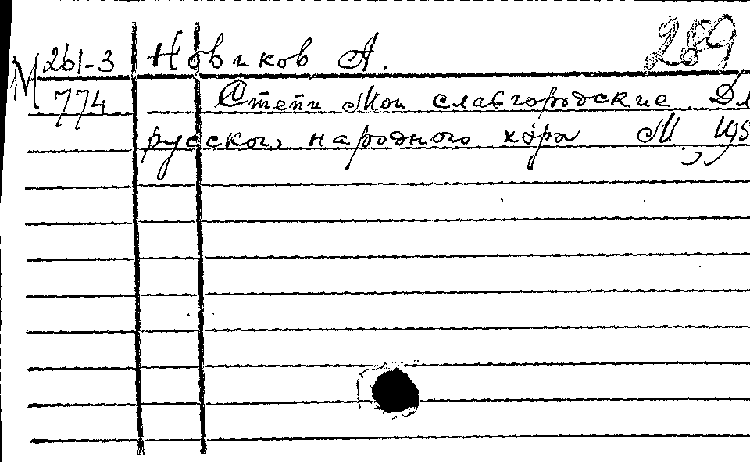 М 261-3 Новиков А. 289
774 Степи Мои славгородские. Дл
русского народного хора М